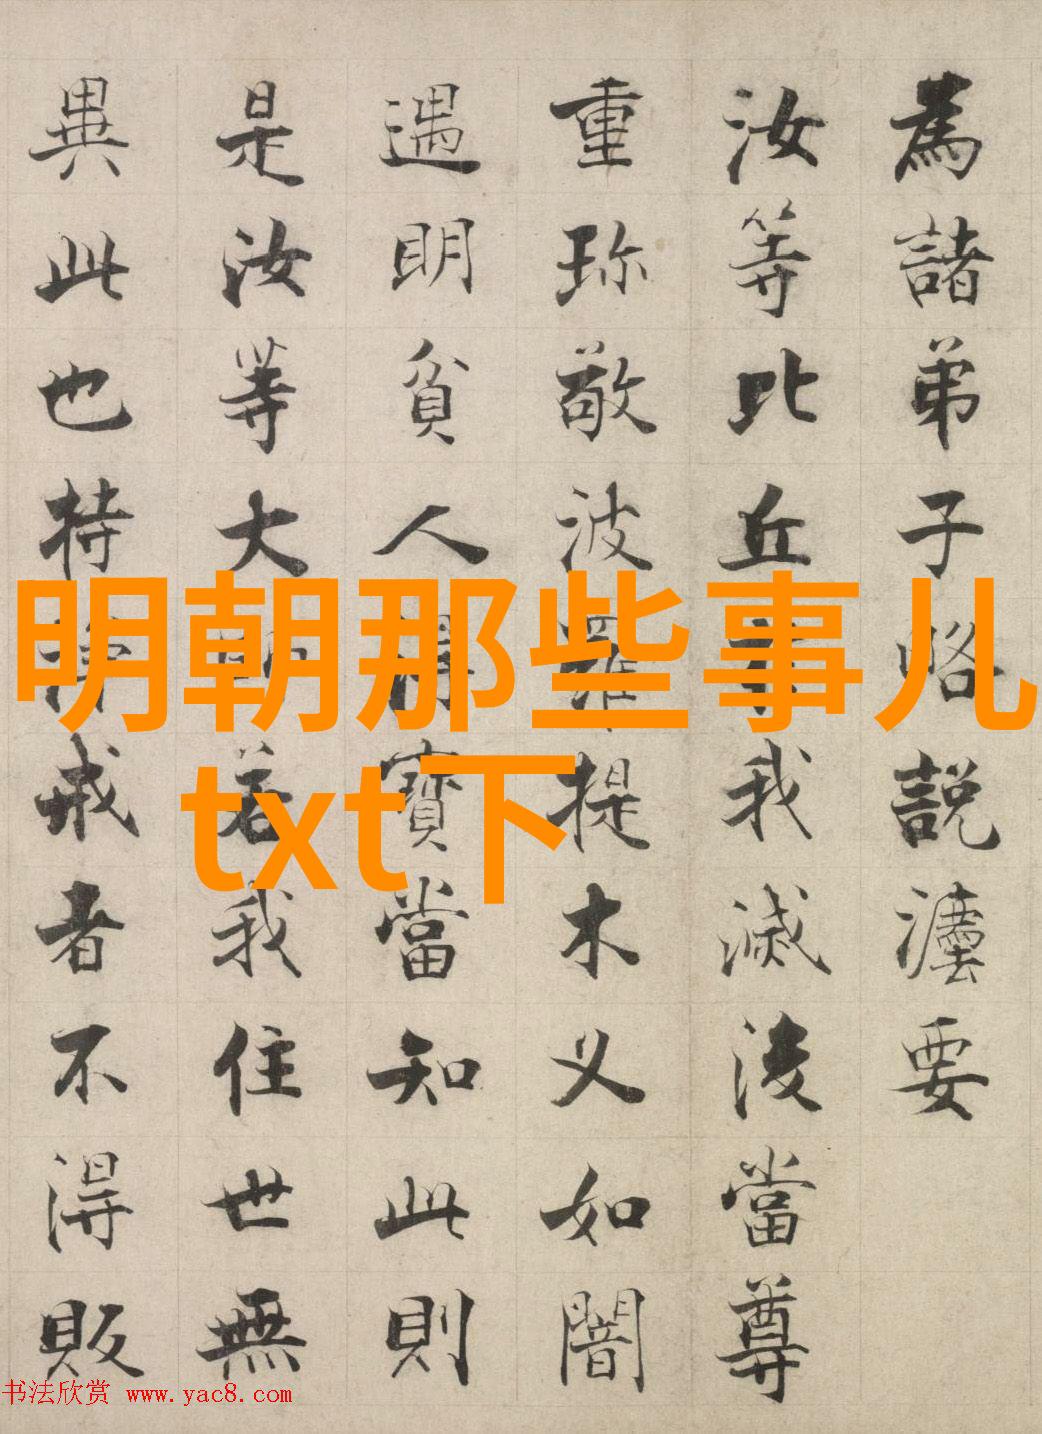 為諸弟子略説灋要
汝等比丘於我滅後當尊
重珎敬波羅提木叉如闇
遇明貧人得寶當知此則
是汝等大師若我住世無
異此也持淨戒者不得販
明朝那些事儿
txt下
书法欣赏 www.yac8.com